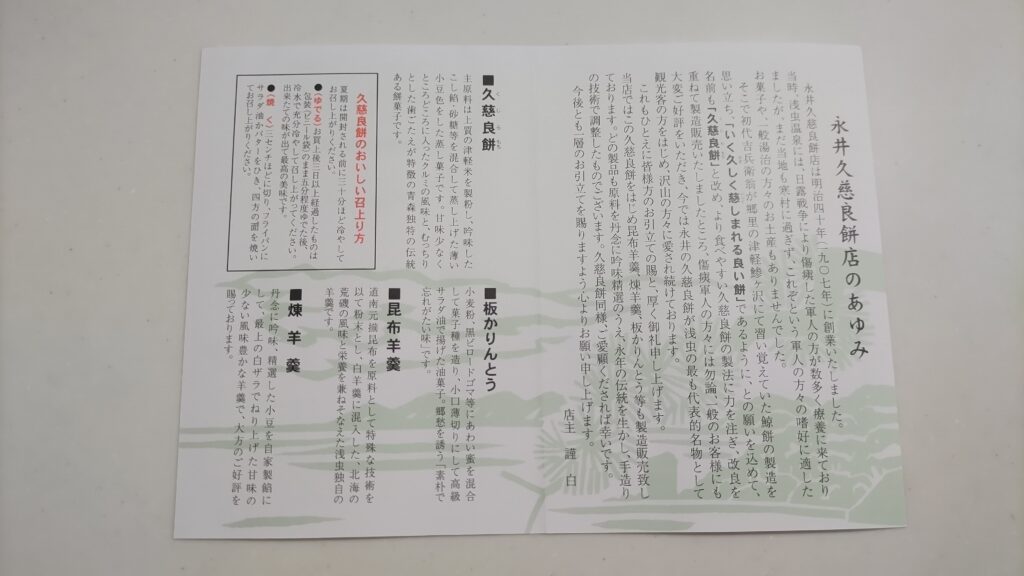 永井久慈良餅店のあゆみ
永井久慈良餅店は明治四十年(一九〇七年)に創業いたしました。
当時、浅虫温泉には、日露戦争により傷痍した軍人の方が数多く療養に来ており
ましたが、まだ当地も寒村に過ぎず、これぞという軍人の方々の嗜好に適した
お菓子や、一般湯治の方々のお土産もありませんでした。
そこで初代吉兵衛翁が郷里の津軽鰺ヶ沢にて習い覚えていた鯨餅の製造を
思い立ち、「いく久しく慈しまれる良い餅」であるように、との願いを込めて、
名前も「久慈良餅」と改め、より食べやすい久慈良餅の製法に力を注ぎ、改良を
重ねて製造販売いたしましたところ、傷痍軍人の方々には勿論、一般のお客様にも
大変ご好評をいただき、今では永井の久慈良餅が浅虫の最も代表的名物として
観光客の方をはじめ、沢山の方々に愛され続けております。
これもひとえに皆様方のお引立ての賜と、厚く御礼申し上げます。
当店ではこの久慈良餅をはじめ昆布羊羹、煉羊羹、板かりんとう等も製造販売致し
ております。どの製品も原料を丹念に吟味精選のうえ、永年の伝統を生かし、手造り
の技術で調整したものでございます。久慈良餅同様、ご愛顧くだされば幸いです。
今後とも一層のお引立てを賜りますよう心よりお願い申し上げます。
店主 謹白
■久慈良餅
くじらもち
主原料は上質の津軽米を製粉し、吟味した
こし餡、砂糖等を混合して蒸し上げた薄い
小豆色をした蒸し菓子です。甘味少なく
ところどころに入ったクルミの風味と、むっちり
とした歯ごたえが特徴の青森独特の伝統
ある餅菓子です。
久慈良餅のおいしい召上り方
夏期は開封される前に三十分ほど冷やして
お召し上がりください。
●(ゆでる)お買上後三日以上経過したものは
包装(ビニール袋)のまま五分程度ゆでた後、
冷水で充分冷やして召し上がってください。
出来たての味が出て最高の美味です。
●(焼く)三センチほどに切り、フライパンに
サラダ油かバターをひき、四方の面を焼い
てお召し上がりください。
■板かりんとう
小麦粉、黒ビロードゴマ等にあわい蜜を混合
して菓子種を造り、小口薄切りにして高級
サラダ油で揚げた油菓子。郷愁を誘う「素朴で
忘れがたい味」です。
■昆布羊羹
道南元揃昆布を原料として特殊な技術を
以て粉末とし、白羊羹に混入した、北海の
荒磯の風味と栄養を兼ねそなえた浅虫独自の
羊羹です。
■煉羊羹
丹念に吟味、精選した小豆を自家製餡に
して、最上の白ザラでねり上げた甘味の
少ない風味豊かな羊羹で、大方のご好評を
賜っております。